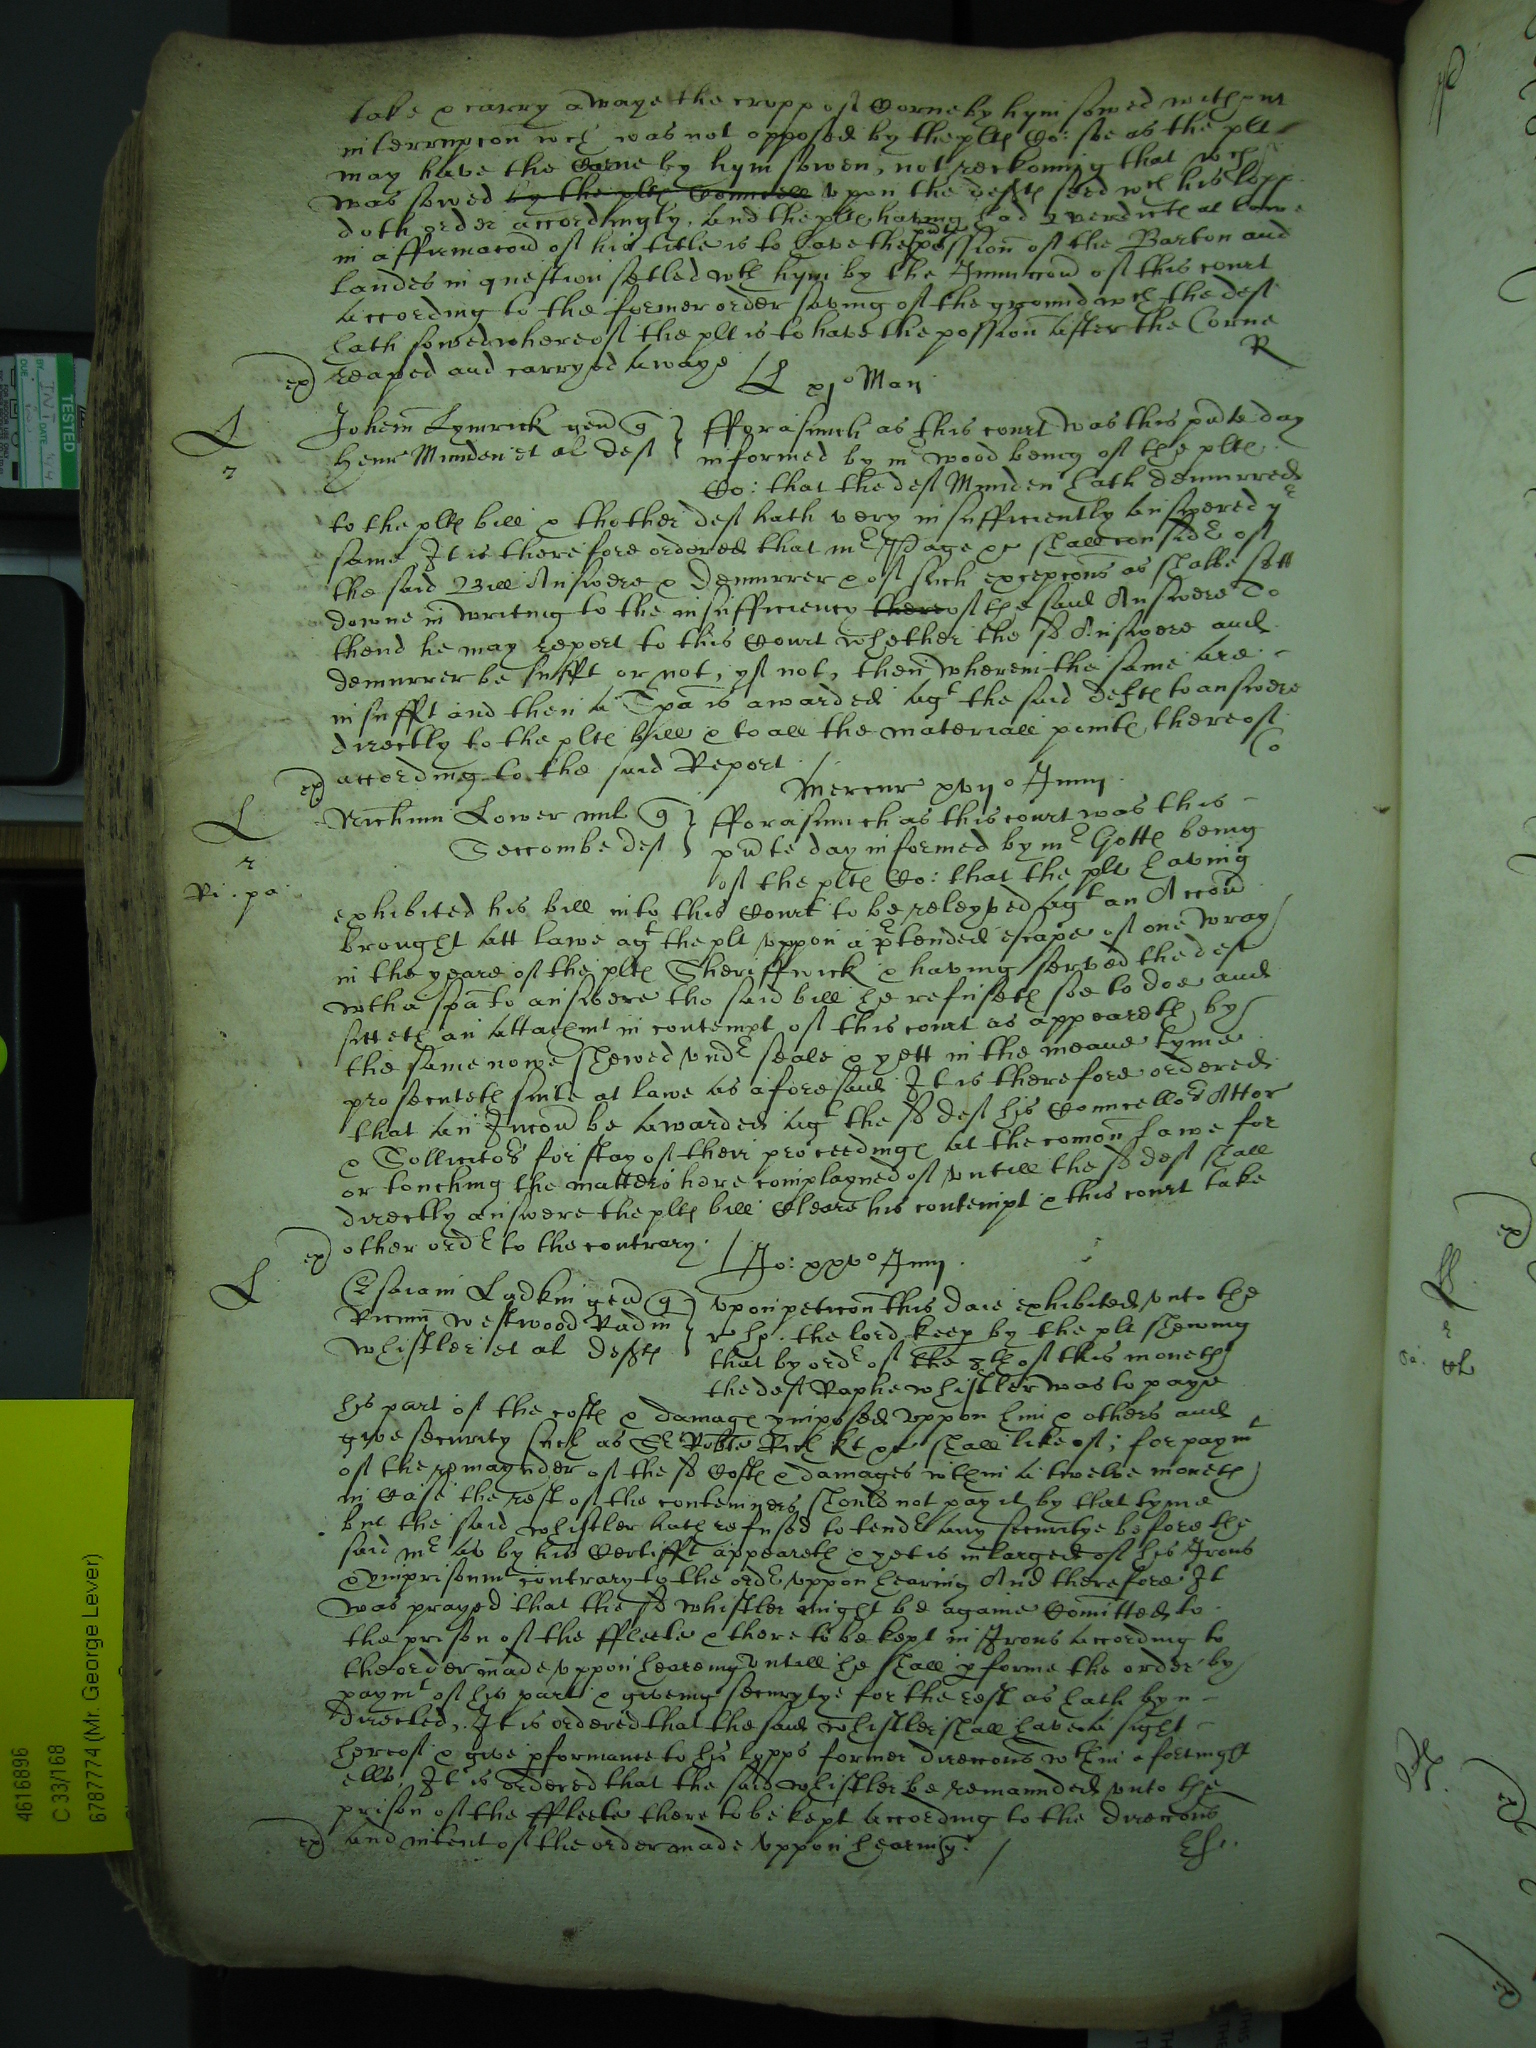 take & carry awaye the cropp of Corne by hym sowed without
interrupcon wch was not opposed by the plts Co: soe as the plt
may have the Corne by hym sowen, not reckoning that wch
was sowed by the plts Councell upon the defts seed wch his lopp
doth order accordingly. And the plt having had a verdicte at lawe
in affirmacon of his title is to have the possion of the Barton and
landes in question setled wth hym by the Iniunccon of this court
according to the former order saving of the ground wch the deft
hath sowed whereof the plt is to have the possion after the Corne
reaped and carryed awaye
R
ex
xjo Maii
Johem Lymrick gen q
Henr Munden et al deft
fforasmuch as this court was this pnte day
informed by mr Wood being of the plts
Co: that the deft Munden hath demurred
to the plts bill & thother deft hath very insufficiently answered ye
same It is therefore ordered that mr Page &c shall considr of
the said Bill Answere & demurrer & of such excepcons as shalbe sett
downe in writing to the insufficiency thereof the said Answere To
thend he may report to this Court whether the sd Answere and
demurrer be sufft or not, yf not, then wherein the same are
insufft and then a Spa is awarded agt the said defts to answere
directly to the plts bill & to all the materiall points thereof
according to the said Report.
ex
Co
Mercur xvijo Junij
Nichum Lower mil q
Seccombe deft
Ri. pa.
fforasmuch as this court was this
pnte day informed by mr Gotts being
of the plts Co: that the plt having
exhibited his bill into this Court to be releyved agt an Accon
brought att lawe agt the plt uppon a prtended escape of one Wray
in the yeare of the plts Sheriffwick & having served the deft
wth a spa to answere the said bill he refuseth soe to doe and
sitteth an attachmt in contempt of this court as appeareth by
the same nowe shewed undr seale & yett in the meane tyme
prosecuteth suite at lawe as aforesaid It is therefore ordered
that an Iniuncon be awarded agt the sd deft his Councellors Attor
& Sollicitors for stay of their proceedings at the comon lawe for
or touching the matters here complayned of untill the sd deft shall
directly answere the plts bill cleare his contempt & this court take
other ordr to the contrary.
ex
Jo: xxvo Junij
Esaiam Ladkin gen q
Ricum Westwood Radm
Whistler et al defts
Upon peticon this daie exhibited unto the
r. ho. the lord keep by the plt shewing
that by ordr of the 8th of this moneth
the deft Raphe Whistler was to paye
his part of the costs & damags ymposed uppon him & others and
give security such as Sr Robte Rich kt &c shall like of, for paymt
of the remaynder of the sd Costs & damages within a twelve moneth
in Case the rest of the contemners should not pay it by that tyme
but the said Whistler hath refused to tendr any securitye before the
said mr as by his Certifft appeareth & yet is inlarged of his Irons
& ymprisonmt contrary to the ordr uppon hearing And therefore It
was prayed that the sd Whistler might be againe Comitted to
the prison of the ffleete & there to be kept in Irons according to
the order made uppon heareing untill he shall pforme the order by
paymt of his part & giveing securytye for the rest as hath byn
directed. It is ordered that the said Whistler shall have a sight
hereof & give pformance to his lopps former direccons wthin a fortnight
ells It is ordered that the said Whistler be remaunded unto the
prison of the ffleete there to be kept according to the direccons
and intent of the order made uppon hearing.
ex
TESTED
BY INT
DATE
DUE
4616896
C 33/168
6787774 (Mr. George Lever)